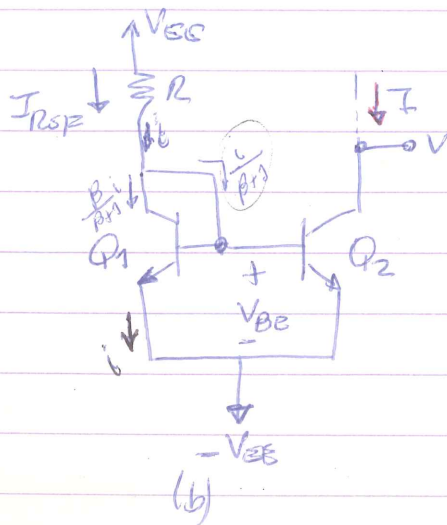 VEE
IREF
R
i
i/β+1
I
V
β/β+1 i
Q1
Q2
+
VBE
-
i
-VEE
(b)